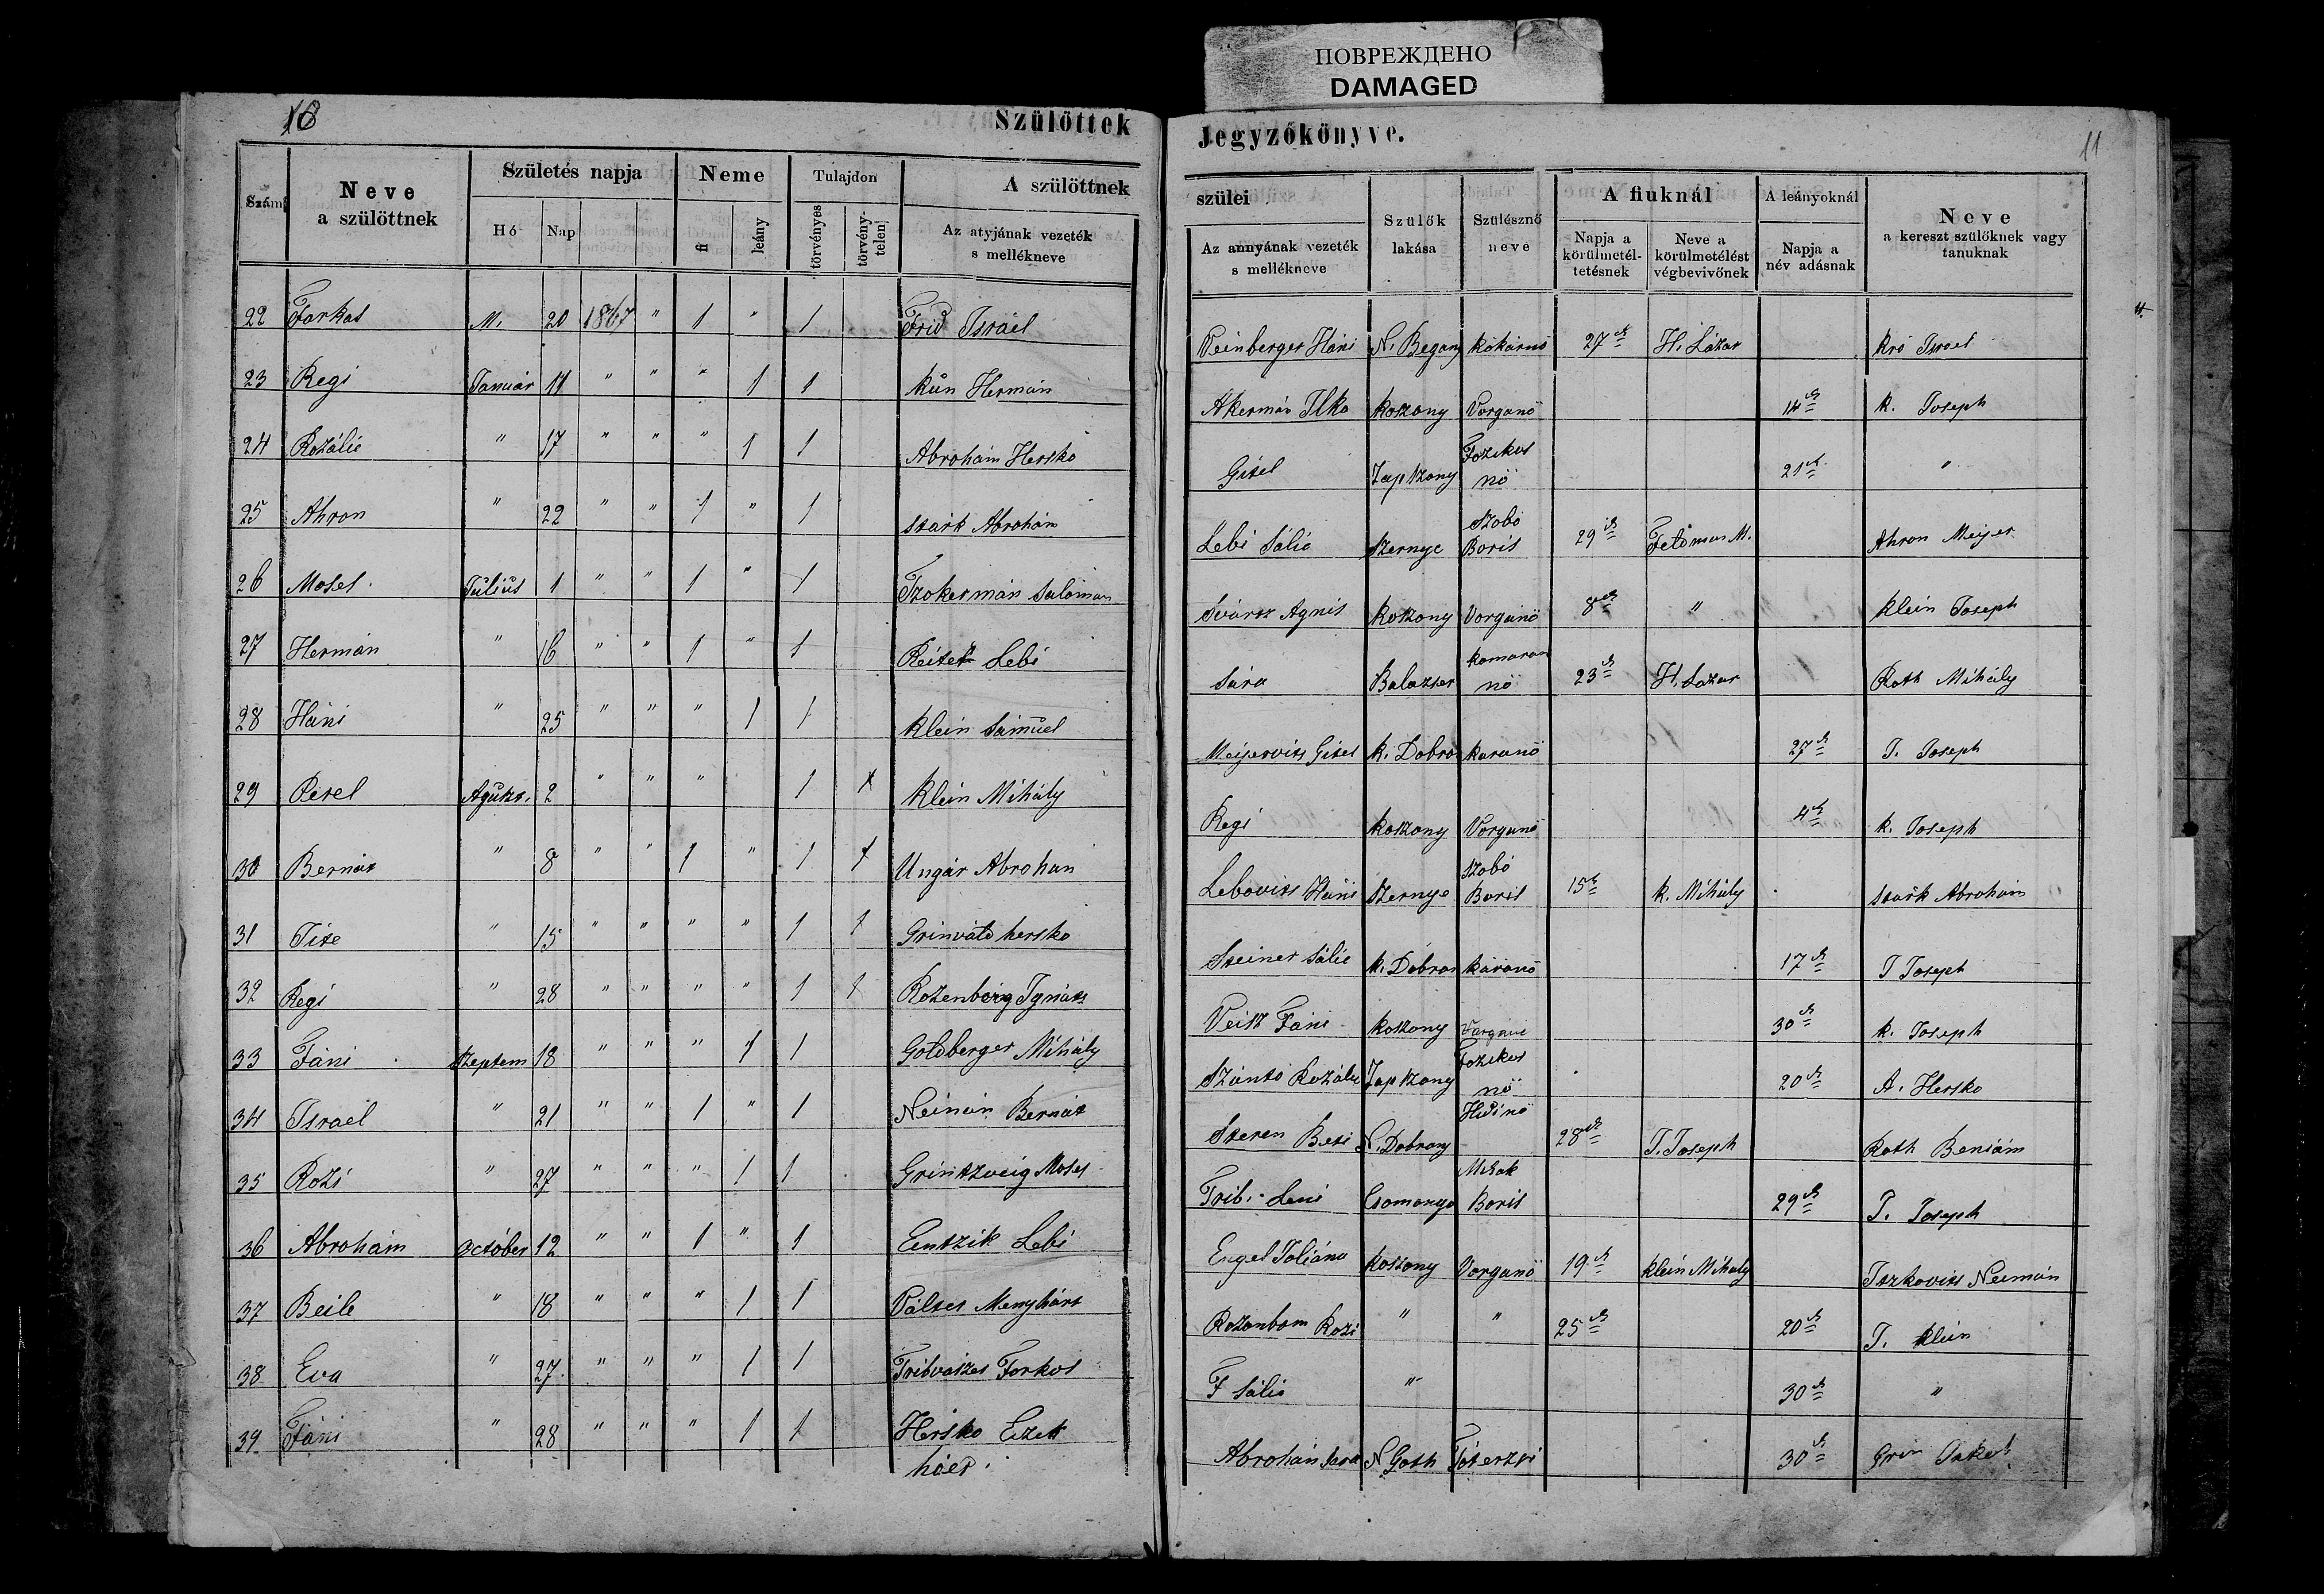 ПОВРЕЖДЕНО
DAMAGED
10
Szülöttek
Jegyzőkönyve.
11
Szám
Neve
a szülöttnek
Születés napja
Hó
Nap
Neme
fi
leány
Tulajdon
törvényes
törvény-
telen
A szülöttnek
Az atyjának vezeték
s mellékneve
szülei
Az annyának vezeték
s mellékneve
Szülők
lakása
Szülésznő
neve
A fiuknál
Napja a
körülmetél-
tetésnek
Neve a
körülmetélést
végbevivőnek
A leányoknál
Napja a
név adásnak
Neve
a kereszt szülőknek vagy
tanuknak
22 Farkas M. 20 1867 " 1 " 1 Frid Israel Veinberger Háni N. Begany kokásnö 27 H. Lázar Israel
23 Regi Január 11 " " " 1 1 kún Hermán Akermán Ilka koszony Vorganö 14 k. Joseph
24 Rozálie " 17 " " " 1 1 Abrohám Hersko Gitel Jap Szony Fozekos nö 21 "
25 Ahron " 22 " " 1 " 1 Stark Abrohám Lebi Sálie Szernye Szobó Boris 29 Feldman M. Ahron Meijer
26 Moses Július 1 " " 1 " 1 Salomon Svarsz Agnis koszony Vorganö 8 " klein Joseph
27 Hermán " 16 " " 1 " 1 Reiter Lebi Sára Balazser komaron nö 23 H. Lazar Roth Mihály
28 Háni " 25 " " " 1 1 klein Sámuel Meijervits Gitel k. Dobron karanö 27 J. Joseph
29 Perel Aguszt. 2 " " " 1 1 klein Mihály Regi koszony Vorganö 4 k. Joseph
30 Bernát " 8 " " 1 " 1 1 Ungár Abrohan Lebovits Háni Szernye Szobó Boris 15 k. Mihály Stark Abrohám
31 " 15 " " " " 1 1 Grinvald hersko Steiner Sálie k. Dobron karanö 17 J Joseph
32 Regi " 28 " " " " 1 1 Rozenberg Ignátz Veisz Fáni koszony 30 k. Joseph
33 Fáni Szeptem 18 " " " 1 1 Goldberger Mihály Szántó Rozálie Jap Szony Fozekos nö 20 A. Hersko
34 Israel " 21 " " 1 " 1 Neimán Bernát Steren Beti N. Dobrony Hidinö 28 J. Joseph Roth Beniám
35 Rozi " 27 " " " 1 1 Grintzveig Moses Frid. Leni Csomonya Boris 29 J. Joseph
36 Abrohám October 12 " " 1 " 1 Lebi Engel Joliána koszony Vorganö 19 klein Mihaly Iszkovits Neimán
37 Beile " 18 " " " 1 1 Menyhárt Rozonbom Rozi " " 25 20 J. klein
38 Eva " 27 " " " 1 1 Forkos F Sálie " 30 "
39 Fáni " 28 " " " 1 1 Hersko Abrohán Sara N Goth 30 Grin